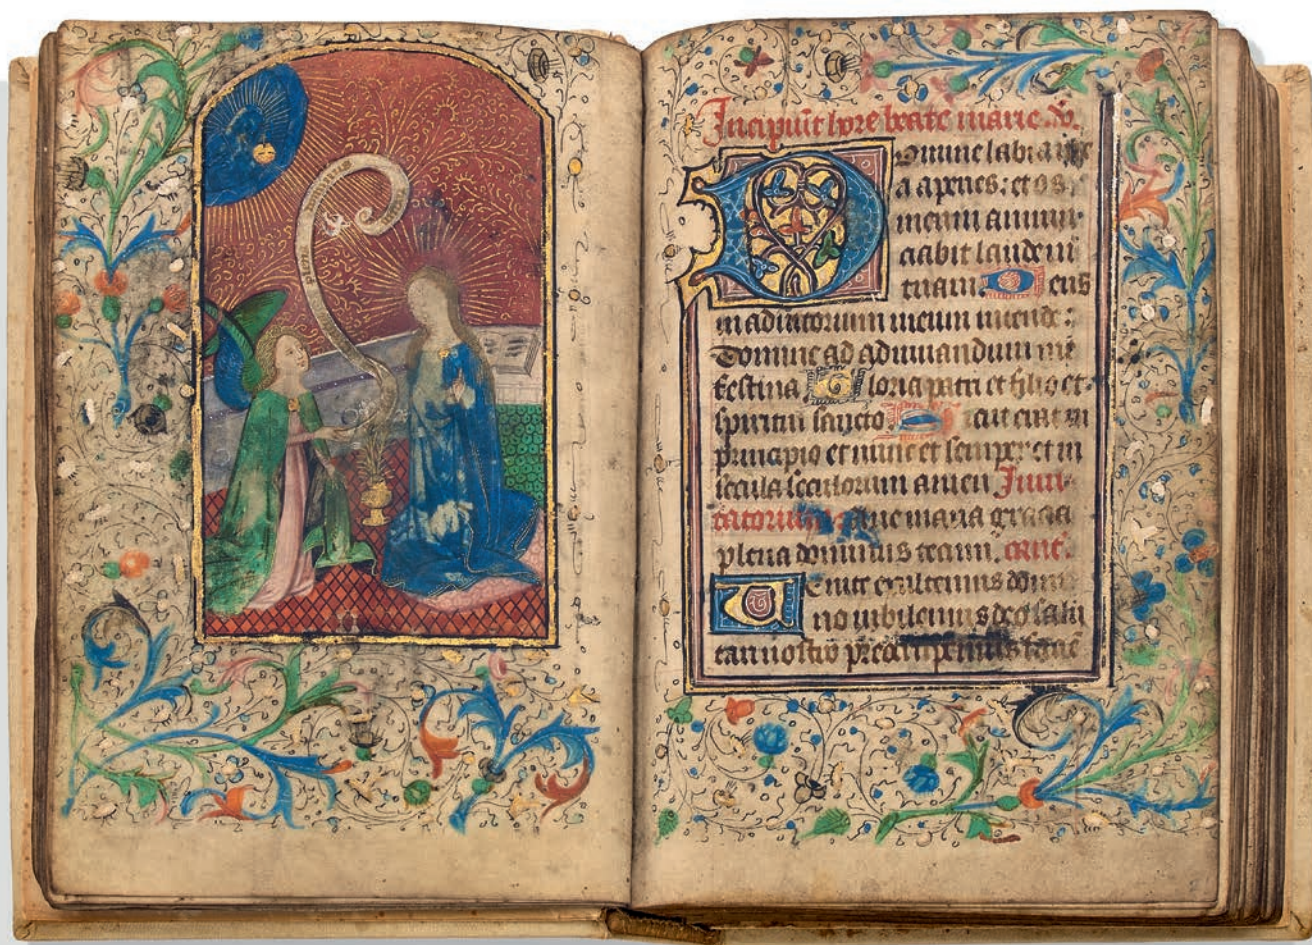 Incipiūt hore beate marie v̄.
Domine labia me
a aperies: et os
meum annun-
ciabit laudem
tuam Deus
in adiutorium meum intende:
Domine ad adiuuandum me
festina Gloria patri et filio et
spiritui sancto Sicut erat in
principio et nunc et semper et in
secula seculorum amen Inui-
tatorium Aue maria gracia
plena dominus tecum.
Uenite exultemus domi
no iubilemus deo salu
tari nostro faciē